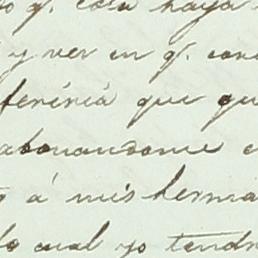 q.e esta haya
y ver en q.e con
feriria que qu
abonandome e
á mis herma
lo cual yo tendr